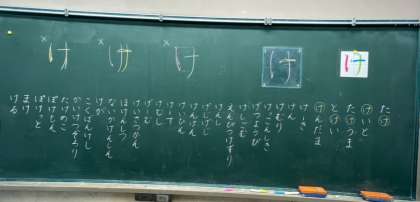 × け
× け
× け
け
け
たけ
けいと
たけうま
とけい
けんだま
けーき
けん
けむり
けっこんしき
げつようび
けしごむ
えんぴつけずり
けんし
げじげじ
けんばん
けいひん
けーす
けむし
げーむ
けいさつかん
ほけんしつ
ないかけんしん
くが
こくばんけし
かいけつぞろり
たけのこ
ぽけもん
ぽけっと
まけ
ける